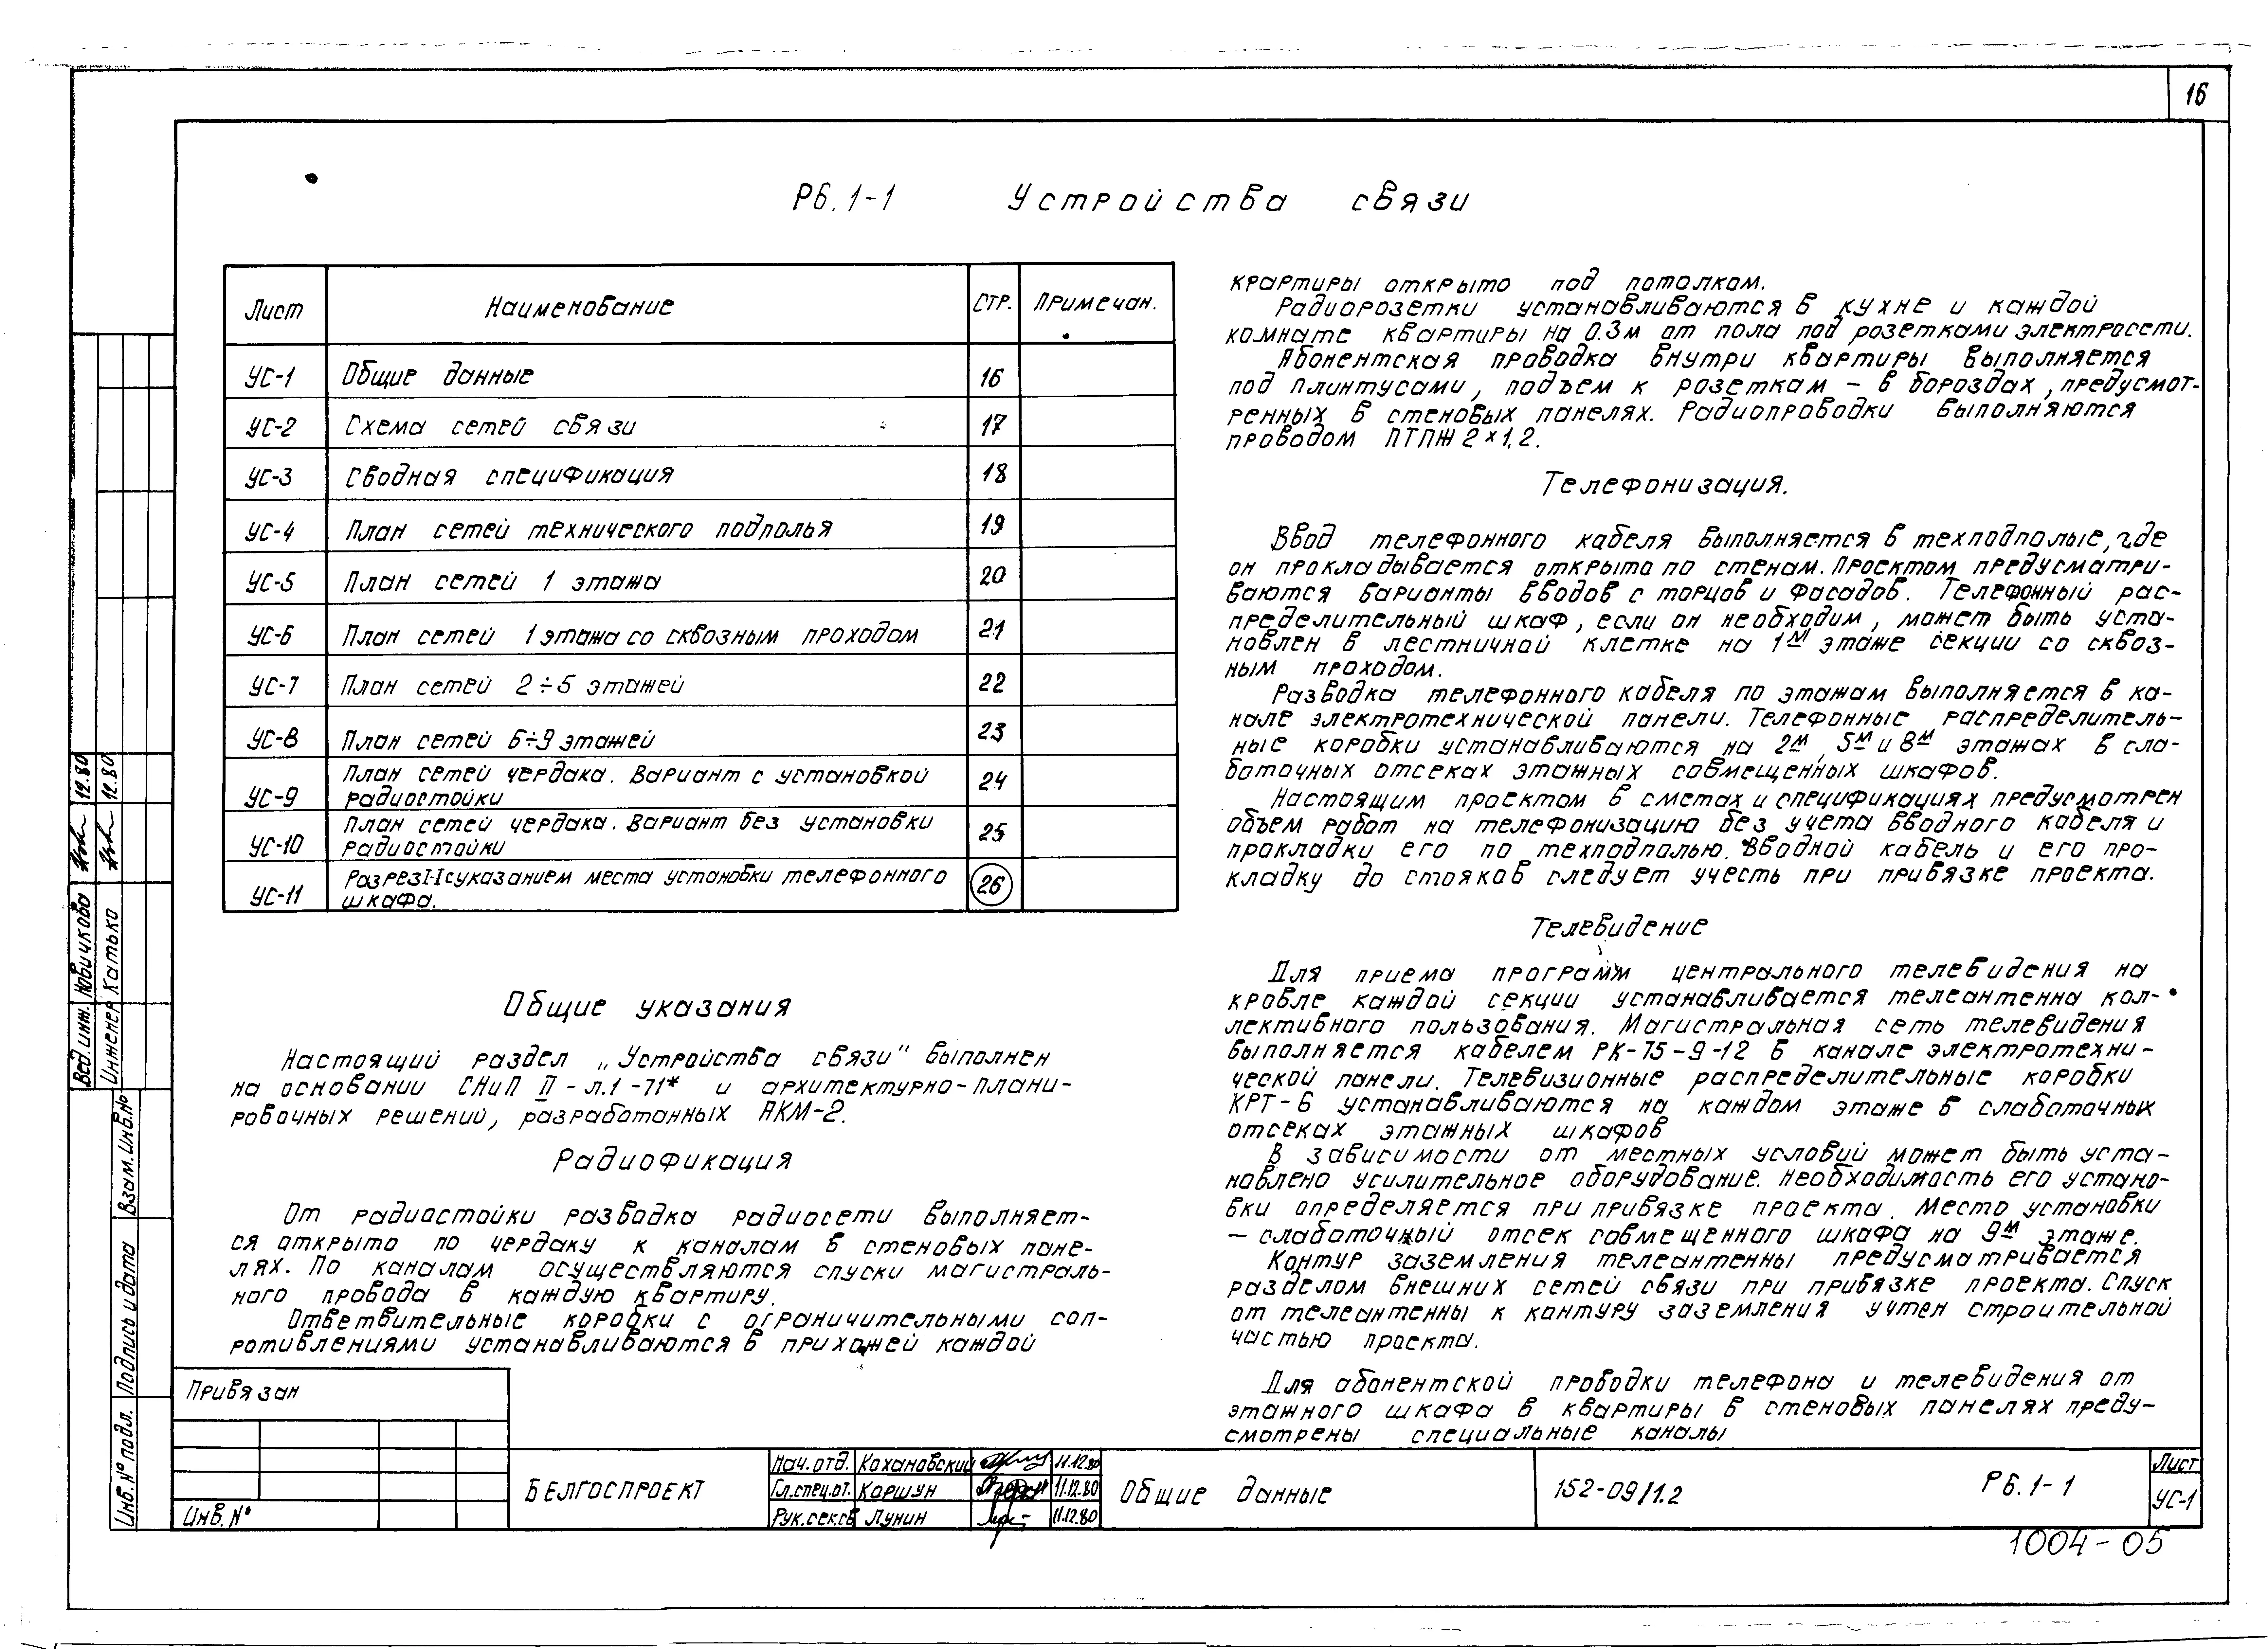 16
Р6.1-1 Устройства связи
Лист Наименование Стр. Примечан.
УС-1 Общие данные 16
УС-2 Схема сетей связи 17
УС-3 Сводная спецификация 18
УС-4 План сетей технического подполья 19
УС-5 План сетей 1 этажа 20
УС-6 План сетей 1 этажа со сквозным проходом 21
УС-7 План сетей 2÷5 этажей 22
УС-8 План сетей 6÷9 этажей 23
УС-9 План сетей чердака. Вариант с установкой
радиостойки 24
УС-10 План сетей чердака. Вариант без установки
радиостойки 25
УС-11 Разрез I-I с указанием места установки телефонного
шкафа. 26
Общие указания
Настоящий раздел „Устройства связи" выполнен
на основании СНиП II-л.1-71* и архитектурно-плани-
ровочных решений, разработанных АКМ-2.
Радиофикация
От радиостойки разводка радиосети выполняет-
ся открыто по чердаку к каналам в стеновых пане-
лях. По каналам осуществляются спуски магистраль-
ного провода в каждую квартиру.
Ответвительные коробки с ограничительными соп-
ротивлениями устанавливаются в прихожей каждой
квартиры открыто под потолком.
Радиорозетки устанавливаются в кухне и каждой
комнате квартиры на 0.3м от пола под розетками электросети.
Абонентская проводка внутри квартиры выполняется
под плинтусами, подъем к розеткам – в бороздах, предусмот-
ренных в стеновых панелях. Радиопроводки выполняются
проводом ПТПЖ 2×1,2.
Телефонизация.
Ввод телефонного кабеля выполняется в техподполье, где
он прокладывается открыто по стенам. Проектом предусматри-
ваются варианты вводов с торцов и фасадов. Телефонный рас-
пределительный шкаф, если он необходим, может быть уста-
новлен в лестничной клетке на 1м этаже секции со сквоз-
ным проходом.
Разводка телефонного кабеля по этажам выполняется в ка-
нале электротехнической панели. Телефонные распределитель-
ные коробки устанавливаются на 2м, 5м и 8м этажах в сла-
боточных отсеках этажных совмещенных шкафов.
Настоящим проектом в сметах и спецификациях предусмотрен
объем работ на телефонизацию без учета вводного кабеля и
прокладки его по техподполью. Вводной кабель и его про-
кладку до стояков следует учесть при привязке проекта.
Телевидение
Для приема программ центрального телевидения на
кровле каждой секции устанавливается телеантенна кол-
лективного пользования. Магистральная сеть телевидения
выполняется кабелем РК-75-9-12 в канале электротехни-
ческой панели. Телевизионные распределительные коробки
КРТ-6 устанавливаются на каждом этаже в слаботочных
отсеках этажных шкафов
В зависимости от местных условий может быть уста-
новлено усилительное оборудование. Необходимость его устано-
вки определяется при привязке проекта. Место установки
– слаботочный отсек совмещенного шкафа на 9м этаже.
Контур заземления телеантенны предусматривается
разделом внешних сетей связи при привязке проекта. Спуск
от телеантенны к контуру заземления учтен строительной
частью проекта.
Для абонентской проводки телефона и телевидения от
этажного шкафа в квартиры в стеновых панелях преду-
смотрены специальные каналы
Вед. инж. Новичкова 12.80
Инженер Катько 12.80
Взам. Инв. №
Подпись и дата
Инв. № подл.
Привязан
Инв. №
БЕЛГОСПРОЕКТ
Нач. отд. Кохановский 11.12.80
Гл. спец. от. Коршун 11.12.80
Рук. сек. св. Лунин 11.12.80
Общие данные
152-09/1.2
Р6.1-1
Лист
УС-1
1004-05